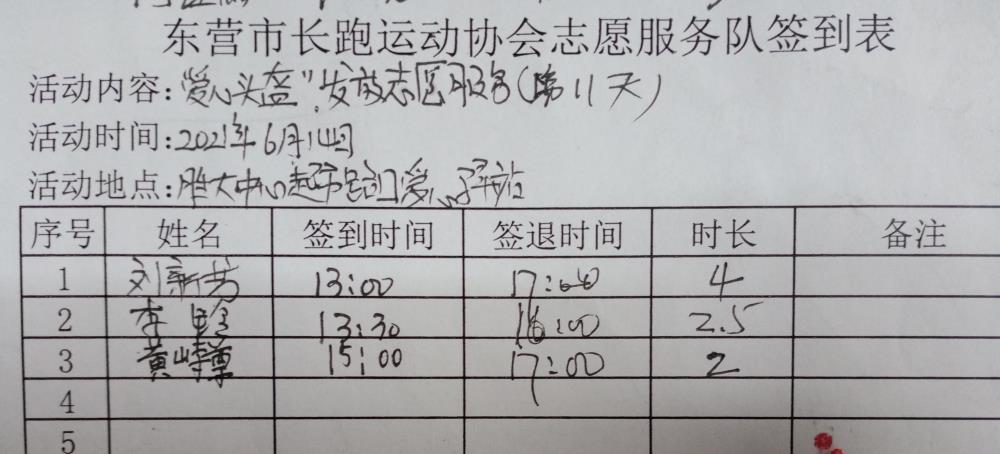 东营市长跑运动协会志愿服务队签到表
活动内容:"爱心头盔"发放志愿服务(第11天)
活动时间:2021年6月14日
活动地点:胜大中心超市路口爱心驿站
序号 姓名 签到时间 签退时间 时长 备注
1 刘新芳 13:00 17:00 4
2 李 13:30 16:00 2.5
3 黄 15:00 17:00 2
4
5